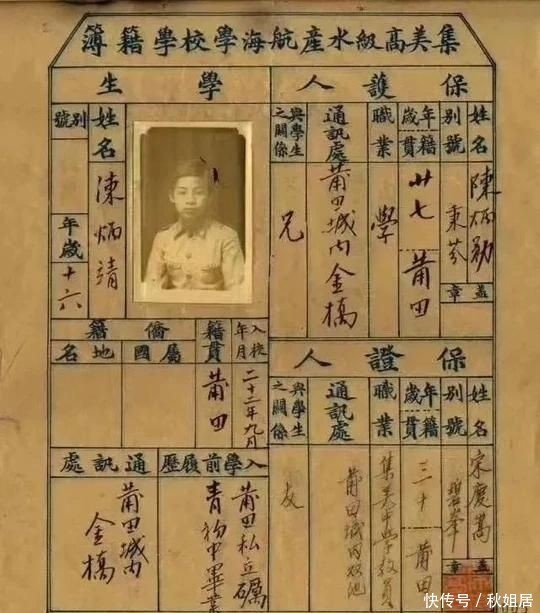 集美高級水產航海學校學籍簿
保護人
姓名 陳炳勛
別號 秉芬
蓋章
年歲 廿七
籍貫 莆田
職業 學
通訊處 莆田城內金橋
與學生之關係 兄
學生
姓名 陳炳靖
別號
年歲 十六
入校年月 二十二年九月
籍貫 莆田
僑籍
屬國
地名
入學前履歷 莆田私立礪青初中畢業
通訊處 莆田城內金橋
保證人
姓名 宋慶嵩
別號 碧峯
蓋章
年歲 三十
籍貫 莆田
職業 集美中學教員
通訊處 莆田城內双池
與學生之關係 友
快传号/秋姐居